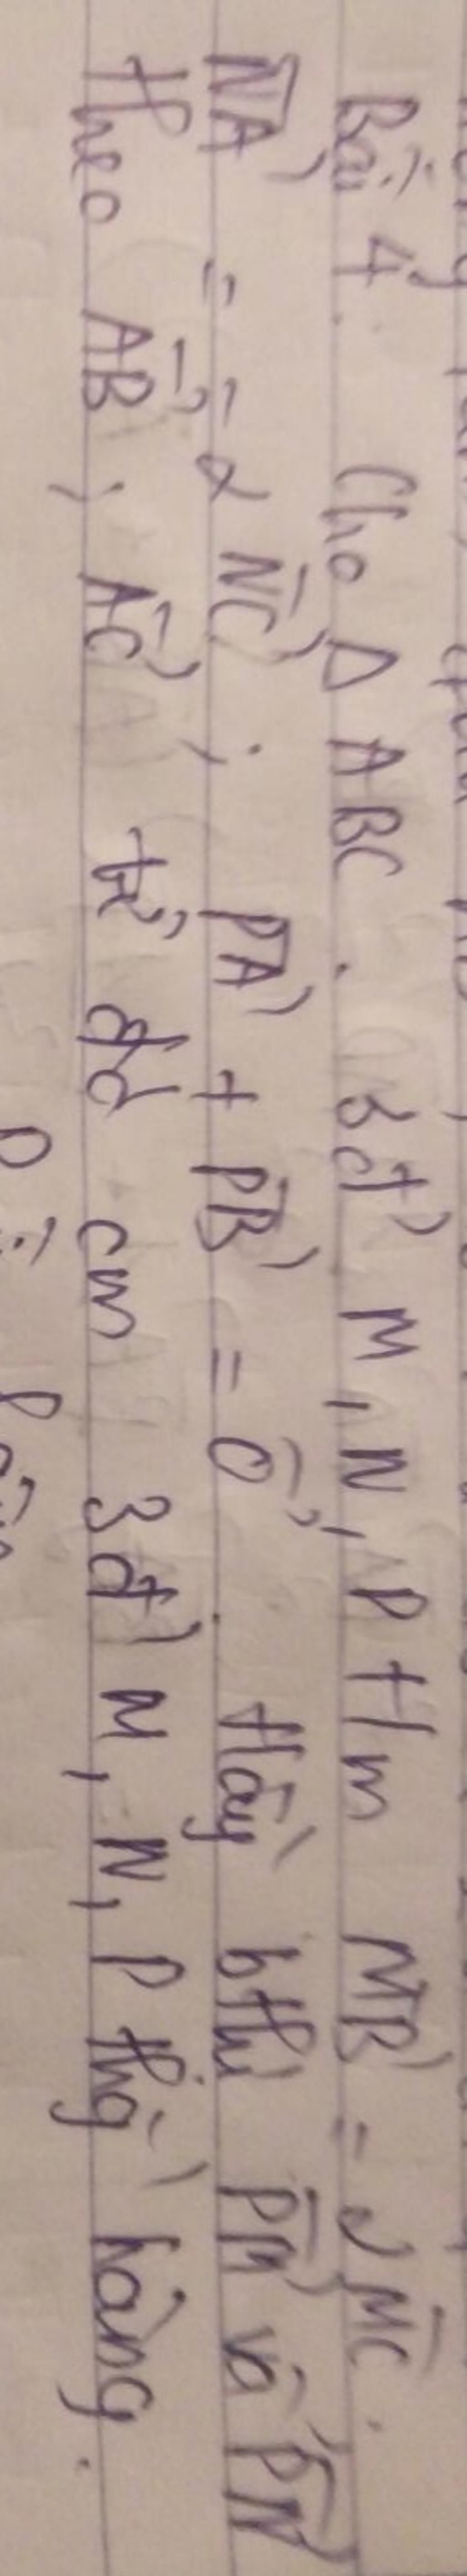 Bài 4. Cho Δ ABC. 3đ' M, N, P t/m MB→ = 2 MC→.
NA→ = -2 NC→; PA→ + PB→ = 0→, Hãy bthị PM→ và PN→
theo AB→; AC→ từ đó cm 3đ' M, N, P thg hàng.